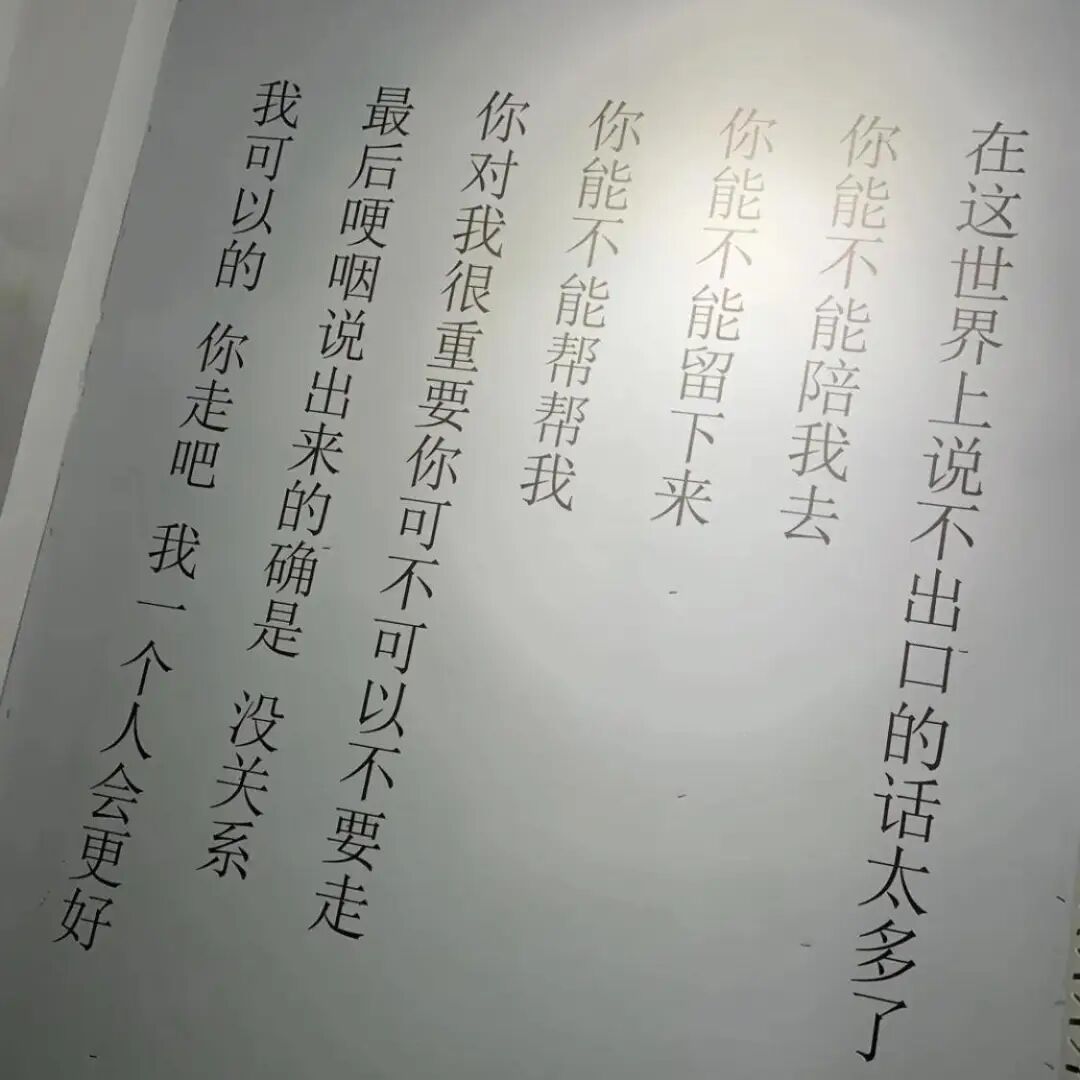 在这世界上说不出口的话太多了
你能不能陪我去
你能不能留下来
你能不能帮帮我
你对我很重要你可不可以不要走
最后哽咽说出来的确是 没关系
我可以的 你走吧 我一个人会更好